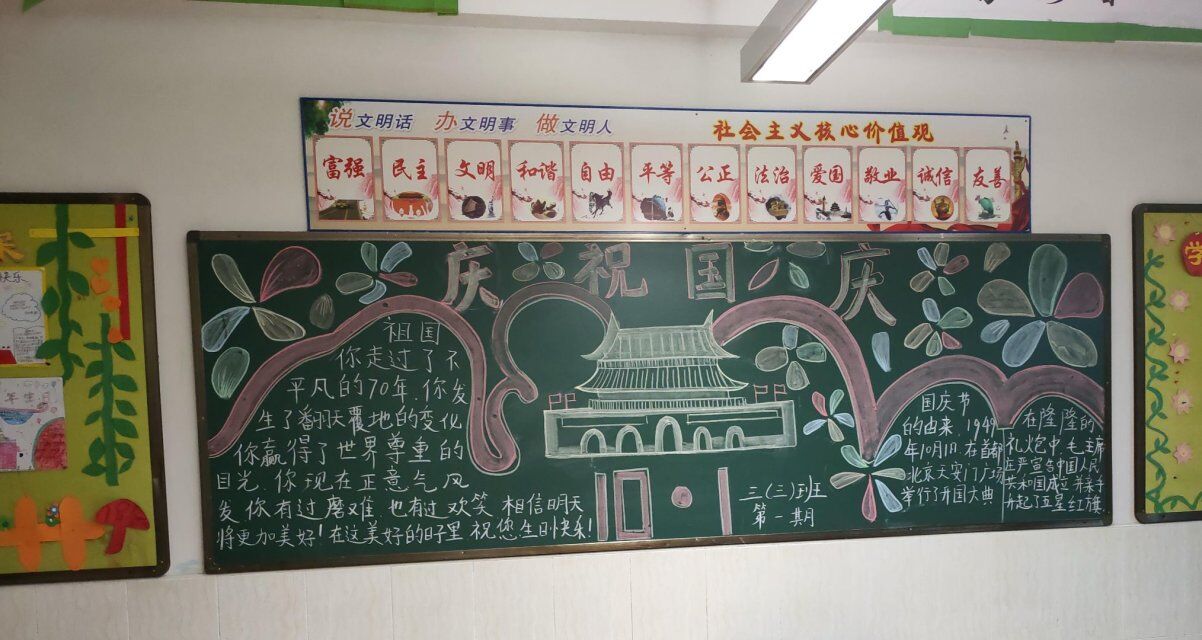 说文明话 办文明事 做文明人
社会主义核心价值观
富强 民主 文明 和谐 自由 平等 公正 法治 爱国 敬业 诚信 友善
庆祝国庆
祖国
你走过了不
平凡的70年.你发
生了翻天覆地的变化
你赢得了世界尊重的
目光.你现在正意气风
发.你有过磨难.也有过欢笑.相信明天
将更加美好!在这美好的日子里.祝您生日快乐!
三(三)班
第一期
国庆节
的由来.1949
年10月1日.在首都
北京天安门广场
举行了开国大典
在隆隆的
礼炮中.毛主席
庄严宣告中国人民
共和国成立.并亲手
升起了五星红旗
快乐
年生日
学